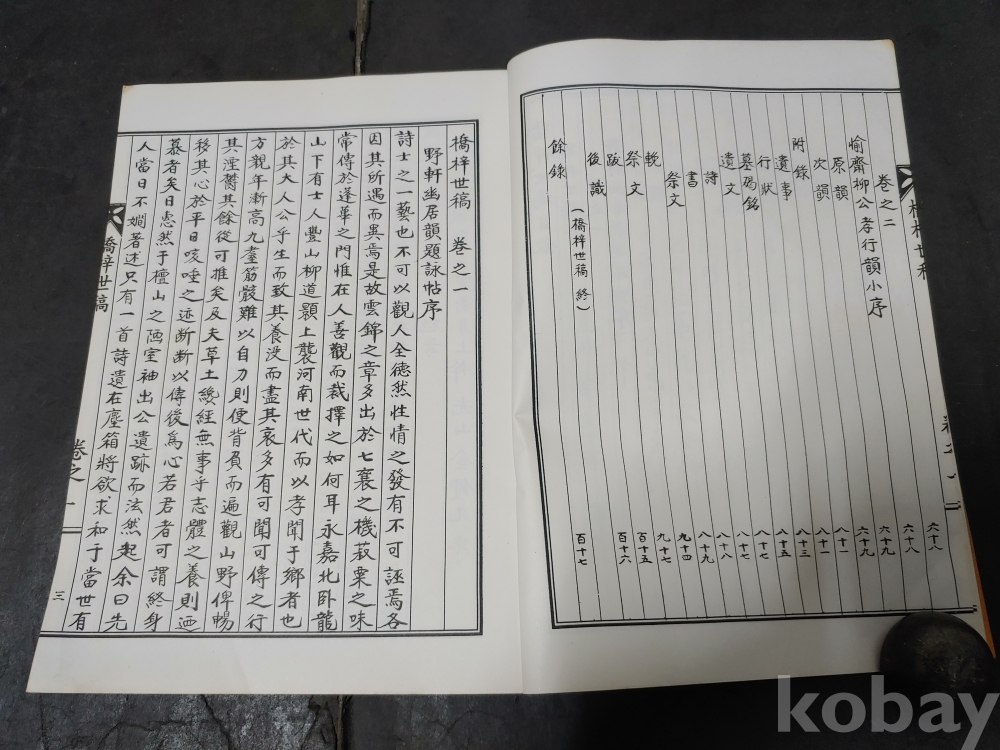 橋梓世稿 卷之一
卷之二 六十八
愉齋柳公孝行韻小序 六十八
原韻 六十九
次韻 六十九
附錄 八十一
遺事 八十一
行狀 八十三
墓碣銘 八十五
遺文 八十七
詩 八十七
書 八十八
祭文 八十九
輓 九十四
祭文 九十七
跋 百十五
後識 百十六
(橋梓世稿 終)
餘錄 百十七
橋梓世稿 卷之一
野軒幽居韻題詠帖序
詩士之一藝也不可以觀人全德然性情之發有不可誣焉各
因其所遇而異焉是故雲錦之章多出於七襄之機菽粟之味
常傳於蓬蓽之門惟在人善觀而裁擇之如何耳永嘉北卧龍
山下有士人豐山柳道顥上襲河南世代而以孝聞于鄉者也
於其大人公乎生而致其養沒而盡其哀多有可聞可傳之行
方親年漸高九耋筋骸難以自力則便背負而遍觀山野俾暢
其湮鬱其餘從可推矣及夫草土纔經無事乎志體之養則迺
移其心於平日咳唾之迹斷斷以傳後爲心若君者可謂終身
慕者矣日惠然于檀山之陋室袖出公遺跡而泫然起余曰先
人當日不嫺著述只有一首詩遺在塵箱將欲求和于當世有
橋梓世稿 卷之一 三
kobay